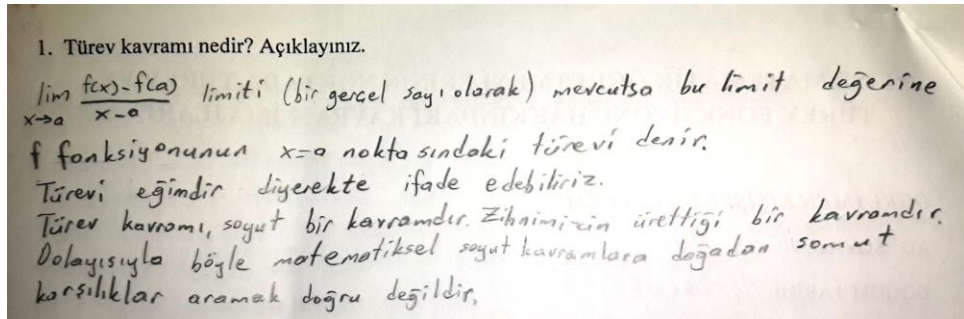 1. Türev kavramı nedir? Açıklayınız.
lim x→a (f(x)-f(a))/(x-a) limiti (bir gerçel sayı olarak) mevcutsa bu limit değerine
f fonksiyonunun x=a noktasındaki türevi denir.
Türevi eğimdir diyerekte ifade edebiliriz.
Türev kavramı, soyut bir kavramdır. Zihnimizin ürettiği bir kavramdır.
Dolayısıyla böyle matematiksel soyut kavramlara doğadan somut
karşılıklar aramak doğru değildir.